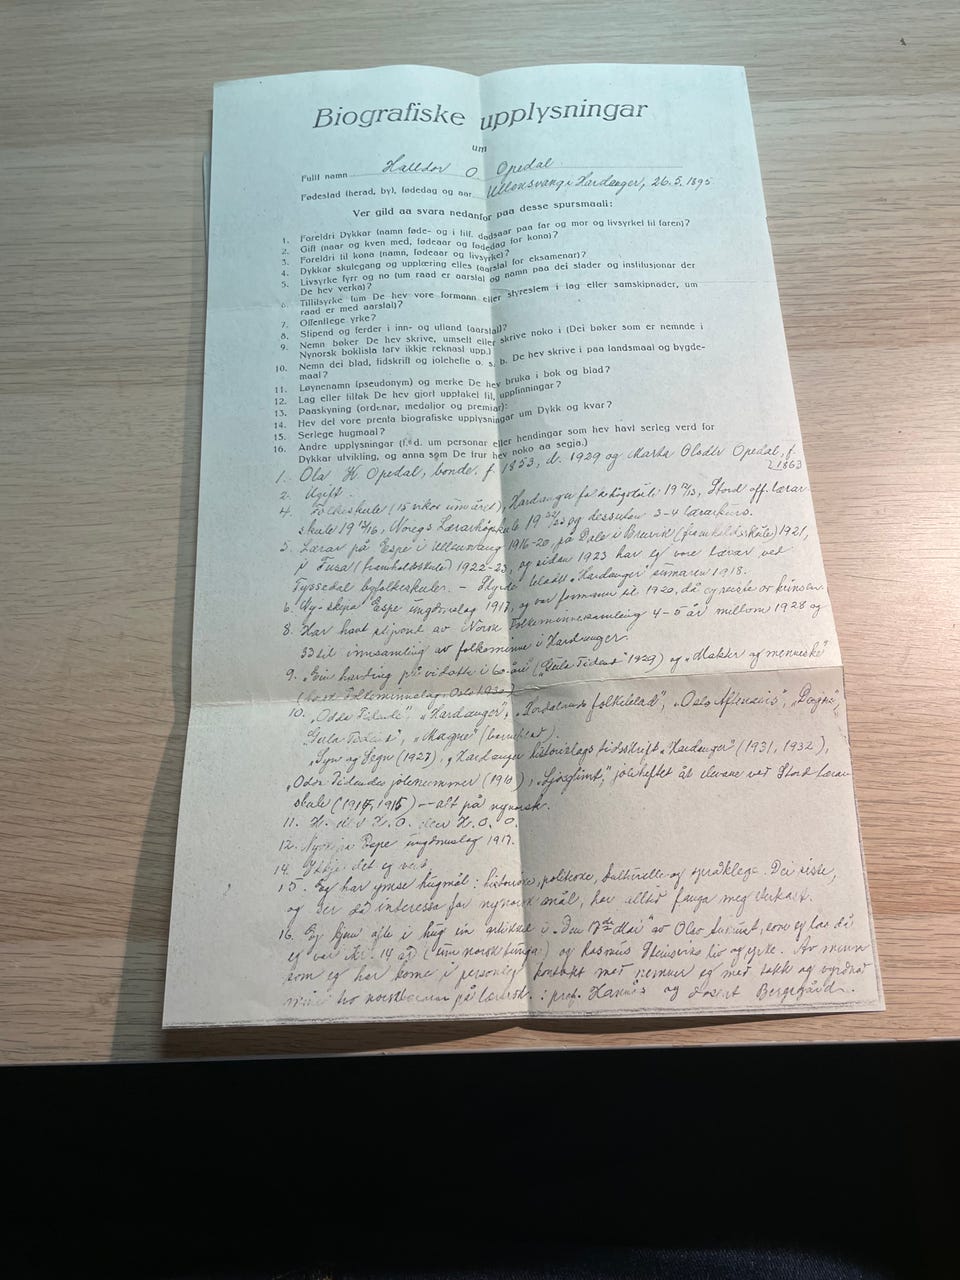 Biografiske upplysningar
um
Fullt namn Halldor O Opedal
Fødestad (herad, by), fødedag og aar Ullensvang i Hardanger, 26.5.1895
Ver gild aa svara nedanfor paa desse spursmaal:
1. Foreldri Dykkar (namn føde- og i tilf. dødsaar paa far og mor og livsyrket til faren)?
2. Gift (naar og kven med, fødeaar og fødedag for kona)?
3. Foreldri til kona (namn, fødeaar og livsyrke)?
4. Dykkar skulegang og upplæring elles (aarstal for eksamenar)?
5. Livsyrke fyrr og no (um raad er aarstal og namn paa dei stader og institusjonar der
De hev verka)?
6. Tillitsyrke (um De hev vore formann eller styreslem i lag eller samskipnader, um
raad er med aarstal)?
7. Offentlege yrke?
8. Stipend og ferder i inn- og utland (aarstal)?
9. Nemn bøker De hev skrive, umsett eller skrive noko i (Dei bøker som er nemnde i
Nynorsk boklista tarv ikkje reknast upp.)
10. Nemn dei blad, tidskrift og jolehefte o. s. b. De hev skrive i paa landsmaal og bygde-
maal?
11. Løynenamn (pseudonym) og merke De hev bruka i bok og blad?
12. Lag eller tiltak De hev gjort upptaket til, uppfinningar?
13. Paaskyning (ordenar, medaljor og premiar):
14. Hev det vore prenta biografiske upplysningar um Dykk og kvar?
15. Serlege hugmaal?
16. Andre upplysningar (t. d. um personar eller hendingar som hev havt serleg verd for
Dykkar utvikling, og anna som De trur hev noko aa segja.)
1. Ola H. Opedal, bonde, f. 1853, d. 1929 og Marta Olsdtr Opedal, f.
1863
2. Ugift.
4. Folkeskule (15 vikor um året), Hardanger folkehøgskule 1912/13, Stord off. lærar-
skule 1913/16, Noregs Lærarhøgskule 1922/23 og dessutan 3-4 lærarkurs.
5. Lærar på Espe i Ullensvang 1916-20, på Dale i Bruvik (framhaldsskule) 1921,
i Fusa (framhaldsskule) 1922-23, og sidan 1923 har eg vore lærar ved
Tyssedal byfolkeskule. - Styrde bladet "Hardanger" sumaren 1918.
6. Ny-skipa Espe ungdomslag 1917, og var formann til 1920, då eg reiste or krinsen.
8. Har havt stipend av Norsk Folkeminnesamling 4-5 år millom 1928 og
33 til innsamling av folkeminne i Hardanger.
9. "Ein harding på vidotta i 60-åri" ("Gula Tidend" 1929) og "Makter og menneske"
(Norsk Folkeminnelag, Oslo 1930)
10. "Odda Tidende", "Hardanger", "Hordalands folkeblad", "Oslo Aftenavis", "Dagen",
"Gula Tidend", "Magne" (barneblad).
"Syn og Segn (1927), "Hardanger historielags tidsskrift, Hardanger" (1931, 1932),
"Odda Tidendes jolenummer (1910), joleheftet åt elevane ved Stord lærar-
skule (1914, 1915) - alt på nynorsk.
11. H. eller H. O. eller H. O. O.
12. Nyskipa Espe ungdomslag 1917.
14. Ikkje det eg veit.
15. Eg har ymse hugmål: historiske, politiske, kulturelle og språklege. Dei siste,
og ser då interessa for nynorsk mål, har alltid fanga meg sterkast.
16. Eg kjem ofte i hug ein artikkel i "Den 17de Mai" av Olav Aukrust, som eg las då
eg var kr. 14 år ("Um norsk tunga") og Rasmus Steinsviks liv og yrke. Av menn
som eg har kome i personleg kontakt med nemner eg med takk og vyrdnad
mine to norsklærarar på lærarsk.: prof. Hannås og dosent Bergsgård.